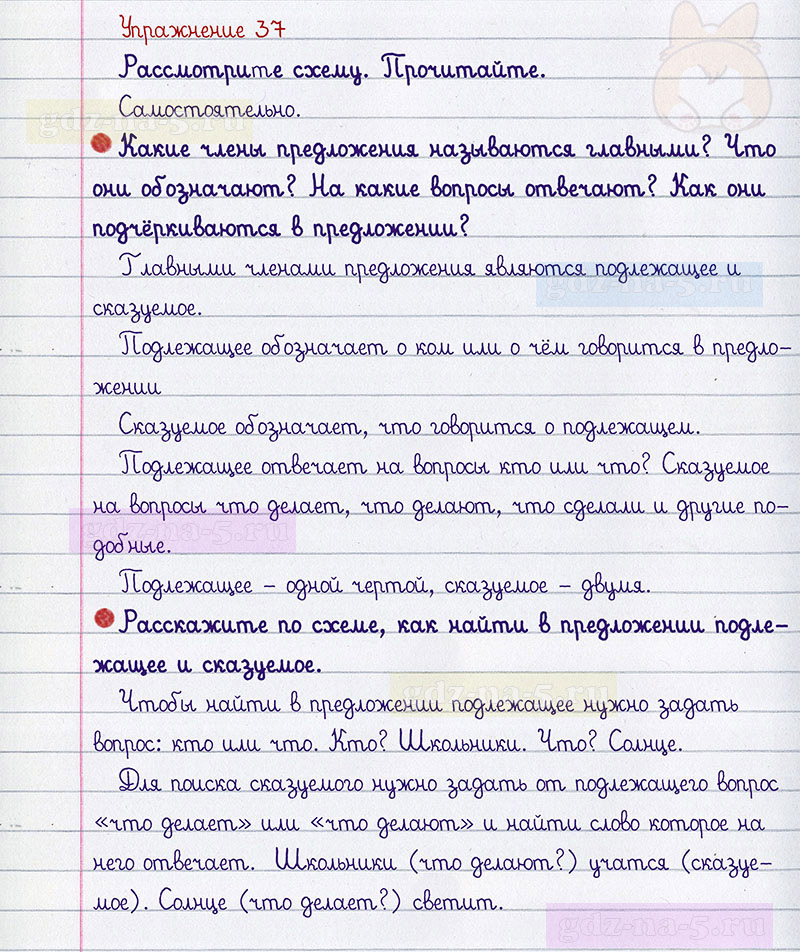 Упражнение 37
Рассмотрите схему. Прочитайте.
Самостоятельно.
gdz-na-5.ru
Какие члены предложения называются главными? Что
они обозначают? На какие вопросы отвечают? Как они
подчёркиваются в предложении?
Главными членами предложения являются подлежащее и
gdz-na-5.ru
сказуемое.
Подлежащее обозначает о ком или о чём говорится в предло-
жении
Сказуемое обозначает, что говорится о подлежащем.
Подлежащее отвечает на вопросы кто или что? Сказуемое
на вопросы что делает, что делают, что сделали и другие по-
gdz-na-5.ru
добные.
Подлежащее – одной чертой, сказуемое – двумя.
Расскажите по схеме, как найти в предложении подле-
жащее и сказуемое.
gdz-na-5.ru
Чтобы найти в предложении подлежащее нужно задать
вопрос: кто или что. Кто? Школьники. Что? Солнце.
Для поиска сказуемого нужно задать от подлежащего вопрос
«что делает» или «что делают» и найти слово которое на
него отвечает. Школьники (что делают?) учатся (сказуе-
мое). Солнце (что делает?) светит.
gdz-na-5.ru